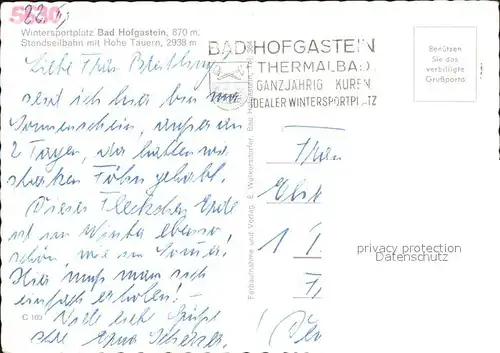 5630
Wintersportplatz Bad Hofgastein, 870 m.
Standseilbahn mit Hohe Tauern, 2938 m
BAD HOFGASTEIN
THERMALBAD
GANZJÄHRIG KUREN
IDEALER WINTERSPORTPLATZ
Benützen
Sie das
verbilligte
Grußporto
Liebe Frau
seit ich hier bin nur
Sonnenschein, außer an
2 Tagen, da hatten wir
starken Föhn gehabt.
Dieses Fleckchen Erde
ist im Winter ebenso
schön, wie im Sommer!
Hier muß man sich
einfach erholen!
Viele liebe Grüße
Ihre Erna
Farbaufnahme und Verlag: E.
C 103
Frau
1
privacy protection
Datenschutz